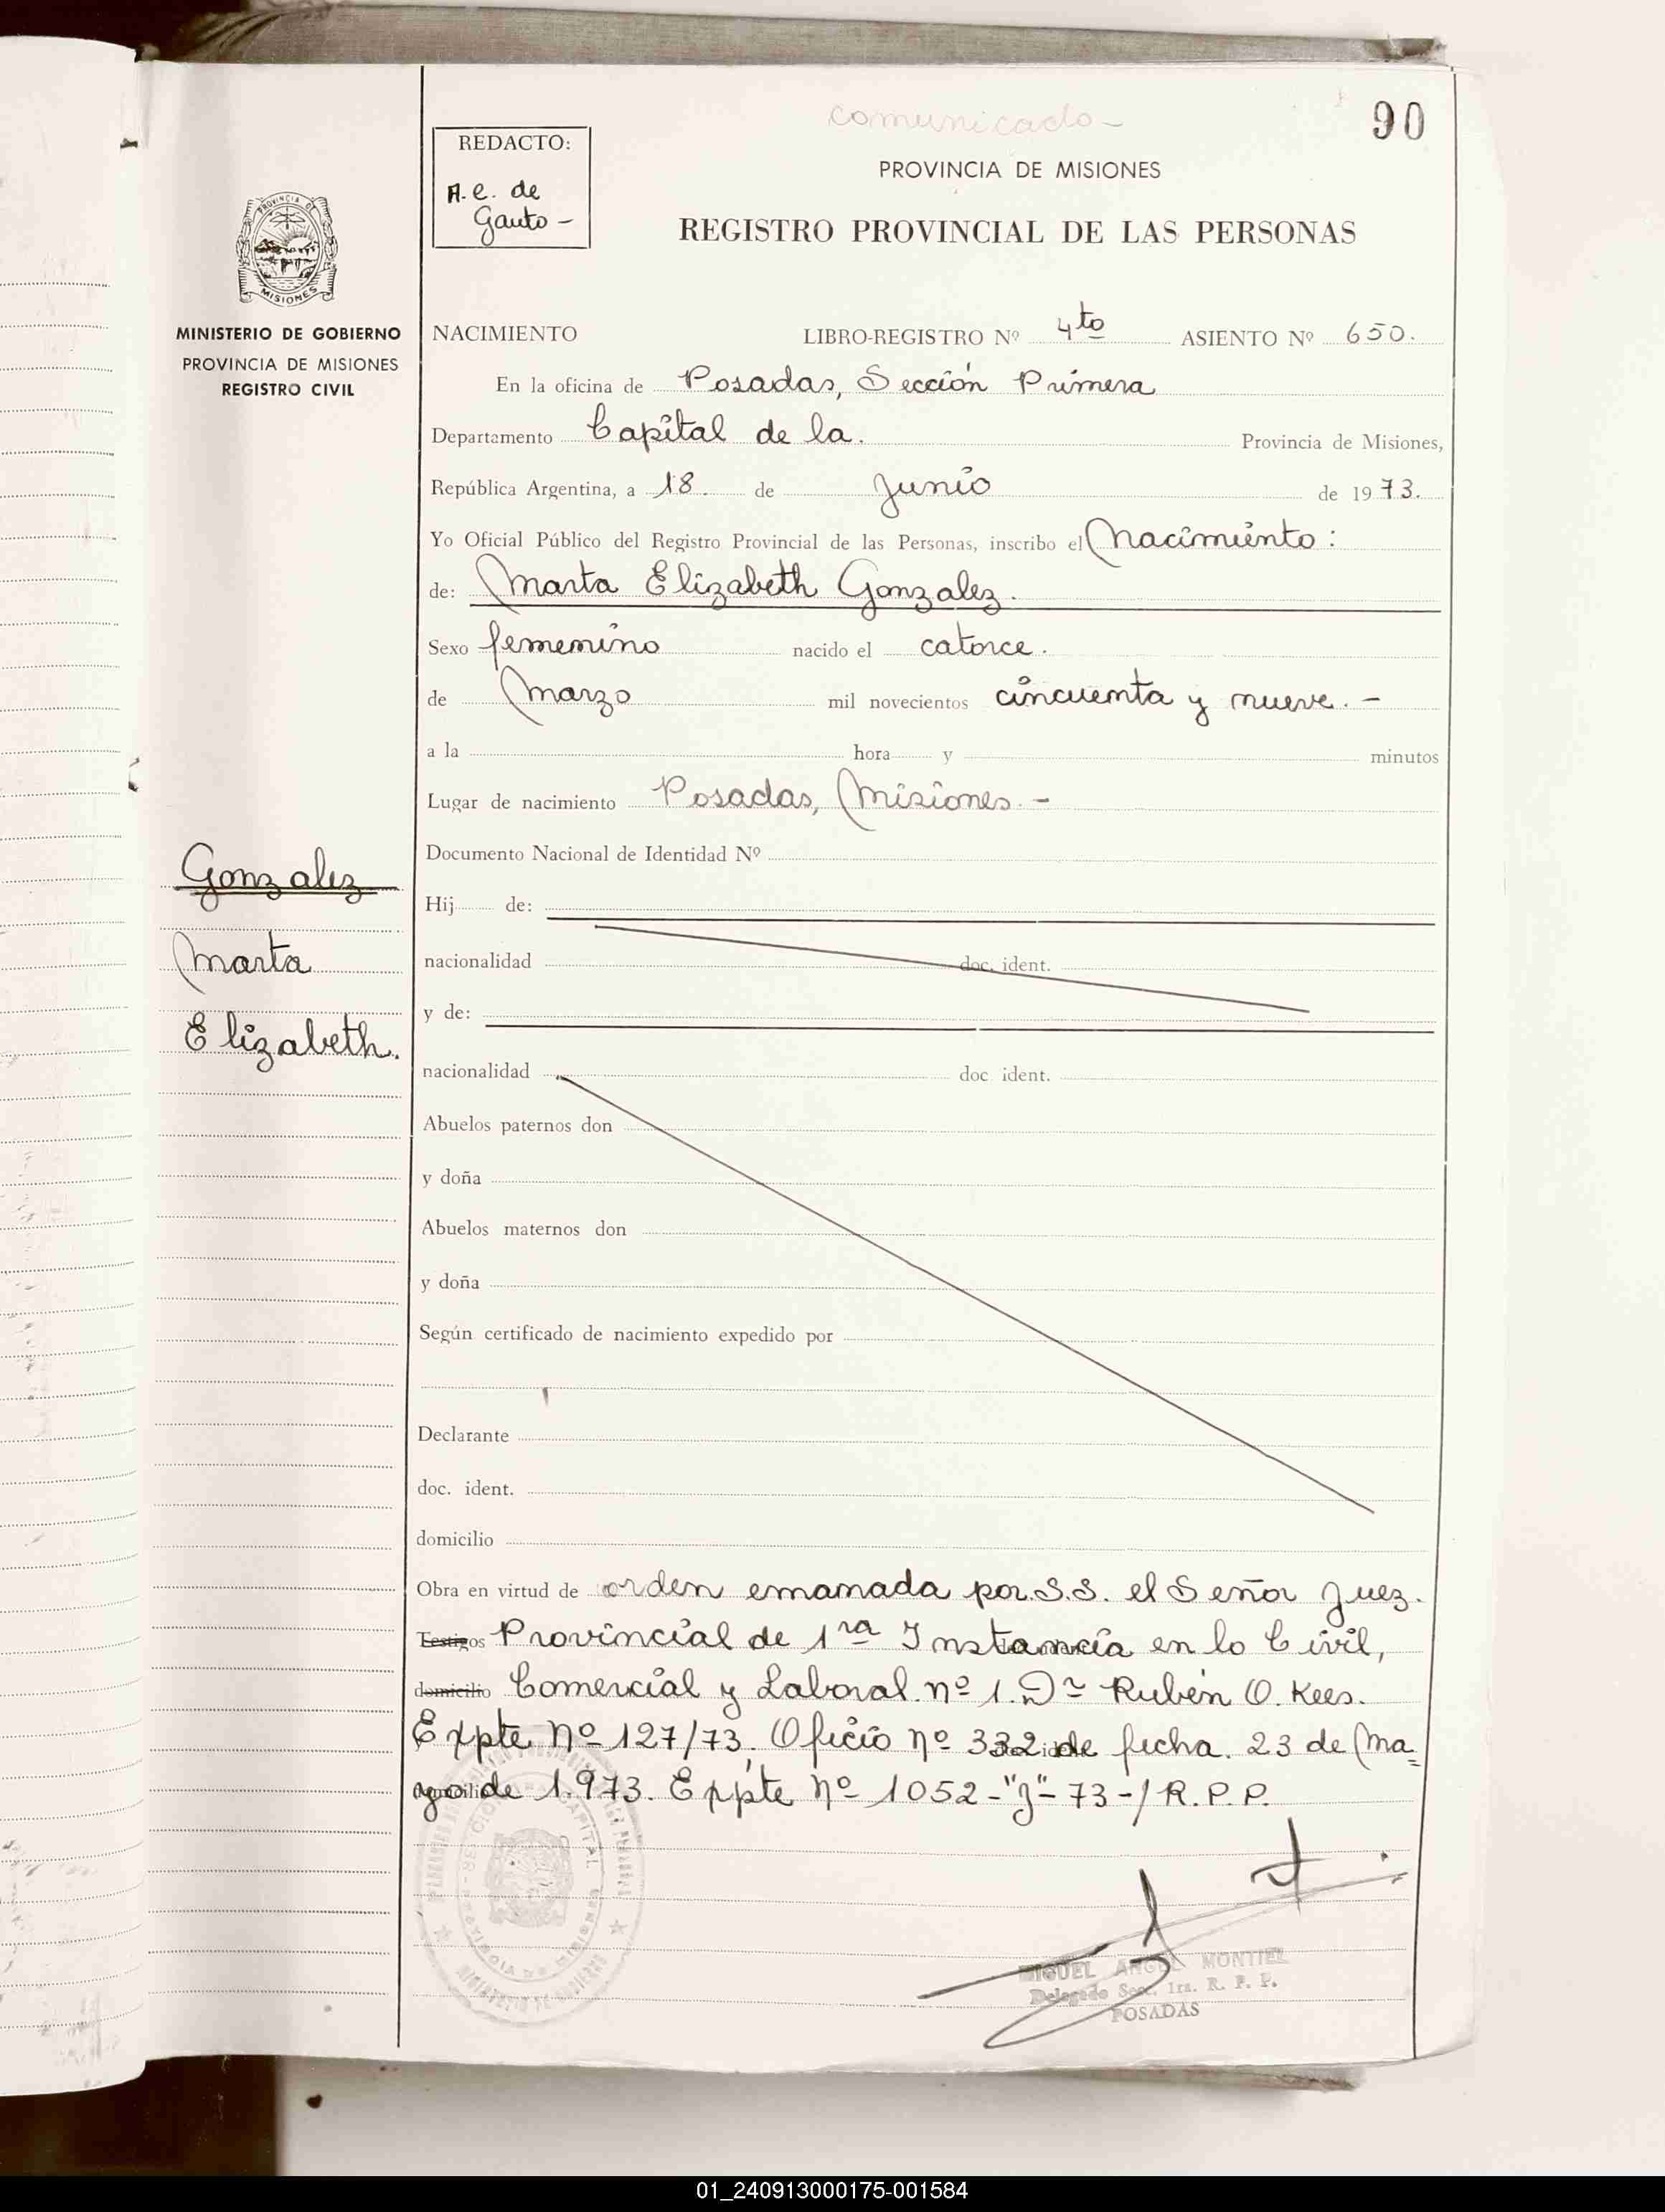 comunicado -
90
REDACTO:
A. e. de
Gauto -
PROVINCIA DE MISIONES
REGISTRO PROVINCIAL DE LAS PERSONAS
PROVINCIA DE
MISIONES
MINISTERIO DE GOBIERNO
PROVINCIA DE MISIONES
REGISTRO CIVIL
NACIMIENTO LIBRO-REGISTRO Nº 4to ASIENTO Nº 650.
En la oficina de Posadas, Sección Primera
Departamento Capital de la. Provincia de Misiones,
República Argentina, a 18. de Junio de 1973.
Yo Oficial Público del Registro Provincial de las Personas, inscribo el Nacimiento:
de: Marta Elizabeth Gonzalez.
Sexo femenino nacido el catorce.
de Marzo mil novecientos cincuenta y nueve. -
a la hora y minutos
Lugar de nacimiento Posadas, Misiones. -
Documento Nacional de Identidad Nº
Gonzalez
Marta
Elizabeth.
Hij de:
nacionalidad doc. ident.
y de:
nacionalidad doc ident.
Abuelos paternos don
y doña
Abuelos maternos don
y doña
Según certificado de nacimiento expedido por
Declarante
doc. ident.
domicilio
Obra en virtud de orden emanada por S.S. el Señor Juez.
Testigos Provincial de 1ra Instancia en lo Civil,
domicilio Comercial y Laboral nº 1. Dr Rubén O. Kees.
Expte Nº 127/73, Oficio nº 332 de fecha. 23 de Ma=
yo de 1.973. Expte Nº 1052-"J"-73-/R.P.P.
MINISTERIO DE GOBIERNO
MIGUEL ANGEL MONTIEL
Delegado Sec. 1ra. R. P. P.
POSADAS
01_240913000175-001584